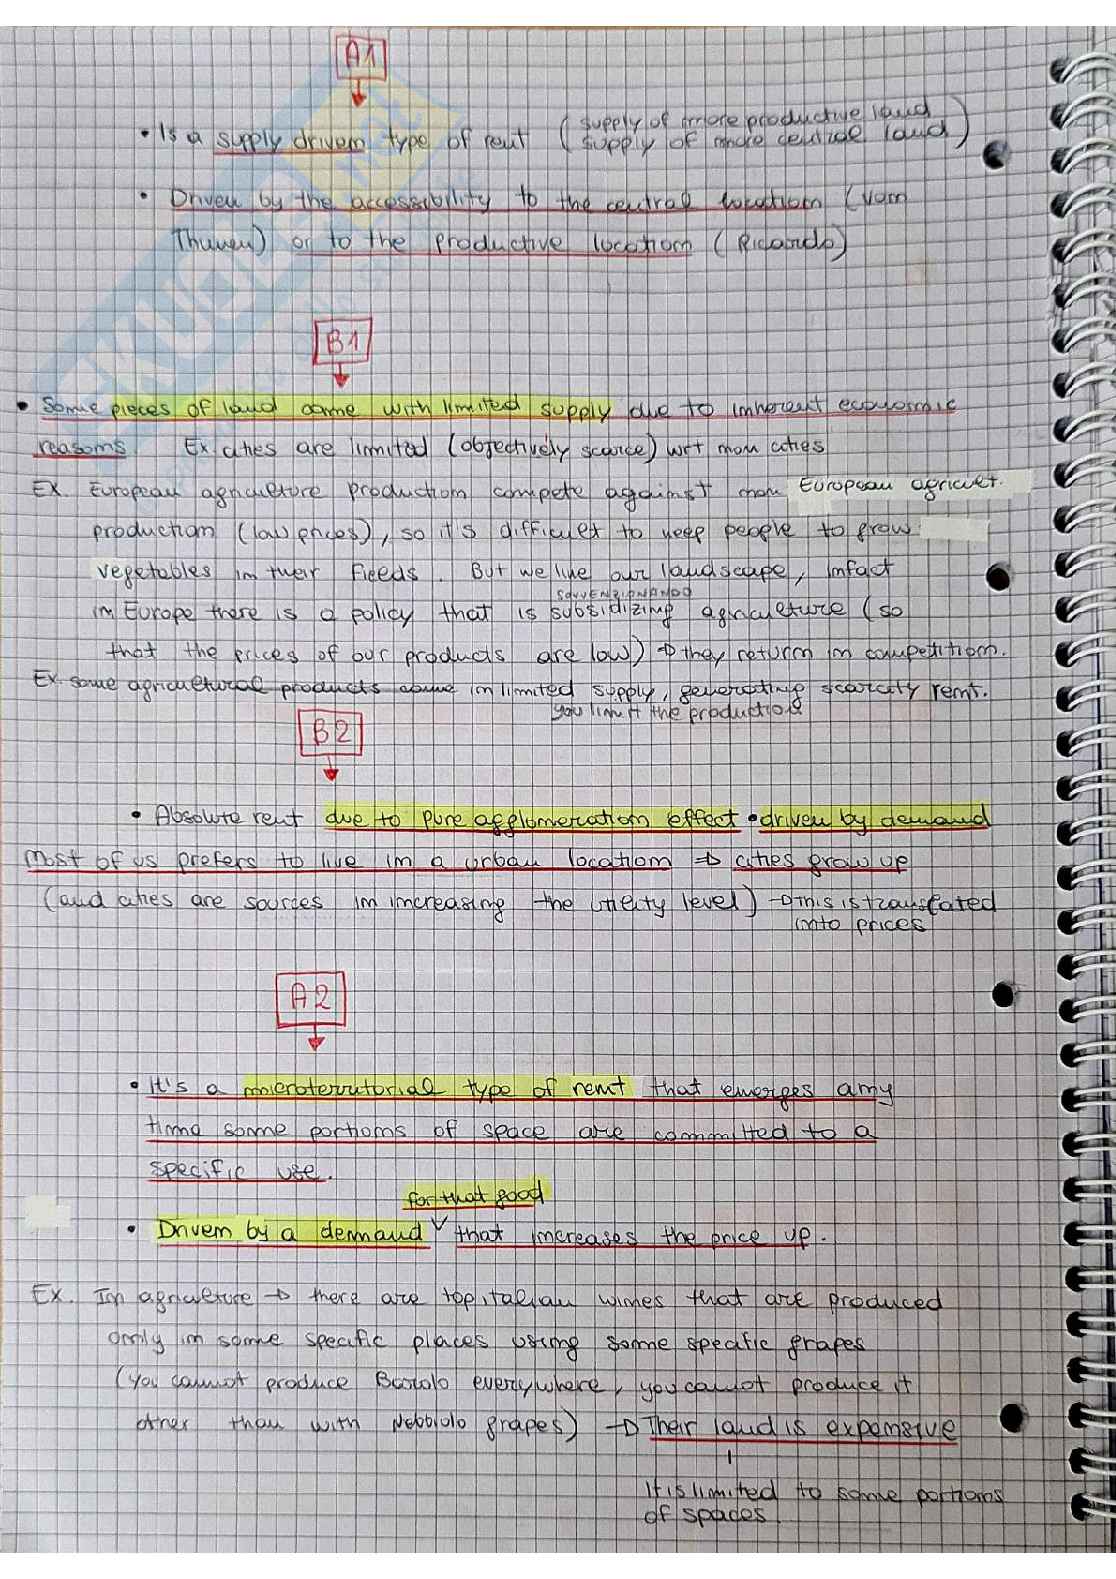 A1
• Is a supply driven type of rent ( supply of more productive land
supply of more central land )
• Driven by the accessibility to the central location (Von
Thunen) or to the productive location ( Ricardo)
B1
• Some pieces of land came with limited supply due to inherent economic
reasons Ex. cities are limited (objectively scarce) wrt non cities
Ex. European agriculture production compete against non European agricult.
production (low prices), so it's difficult to keep people to grow
vegetables in their fields. But we like our landscape, imfact
SOVVENZIONANDO
in Europe there is a policy that is subsidizing agriculture (so
that the prices of our products are low) → they return in competition.
Ex. some agricultural products came in limited supply, generating scarcity rent.
you limit the production
B2
• Absolute rent due to pure agglomeration effect • driven by demand
Most of us prefers to live in a urban location → cities grow up
(and cities are sources in increasing the utility level) → this is translated
into prices
A2
• It's a microterritorial type of rent that emerges any
time some portions of space are committed to a
specific use.
for that good
• Driven by a demand ˅ that increases the price up.
Ex. In agriculture → there are top italian wines that are produced
only in some specific places using some specific grapes
(you cannot produce Barolo everywhere, you cannot produce it
other than with Nebbiolo grapes) → Their land is expensive
It is limited to some portions
of spaces.
SKUOLA.net